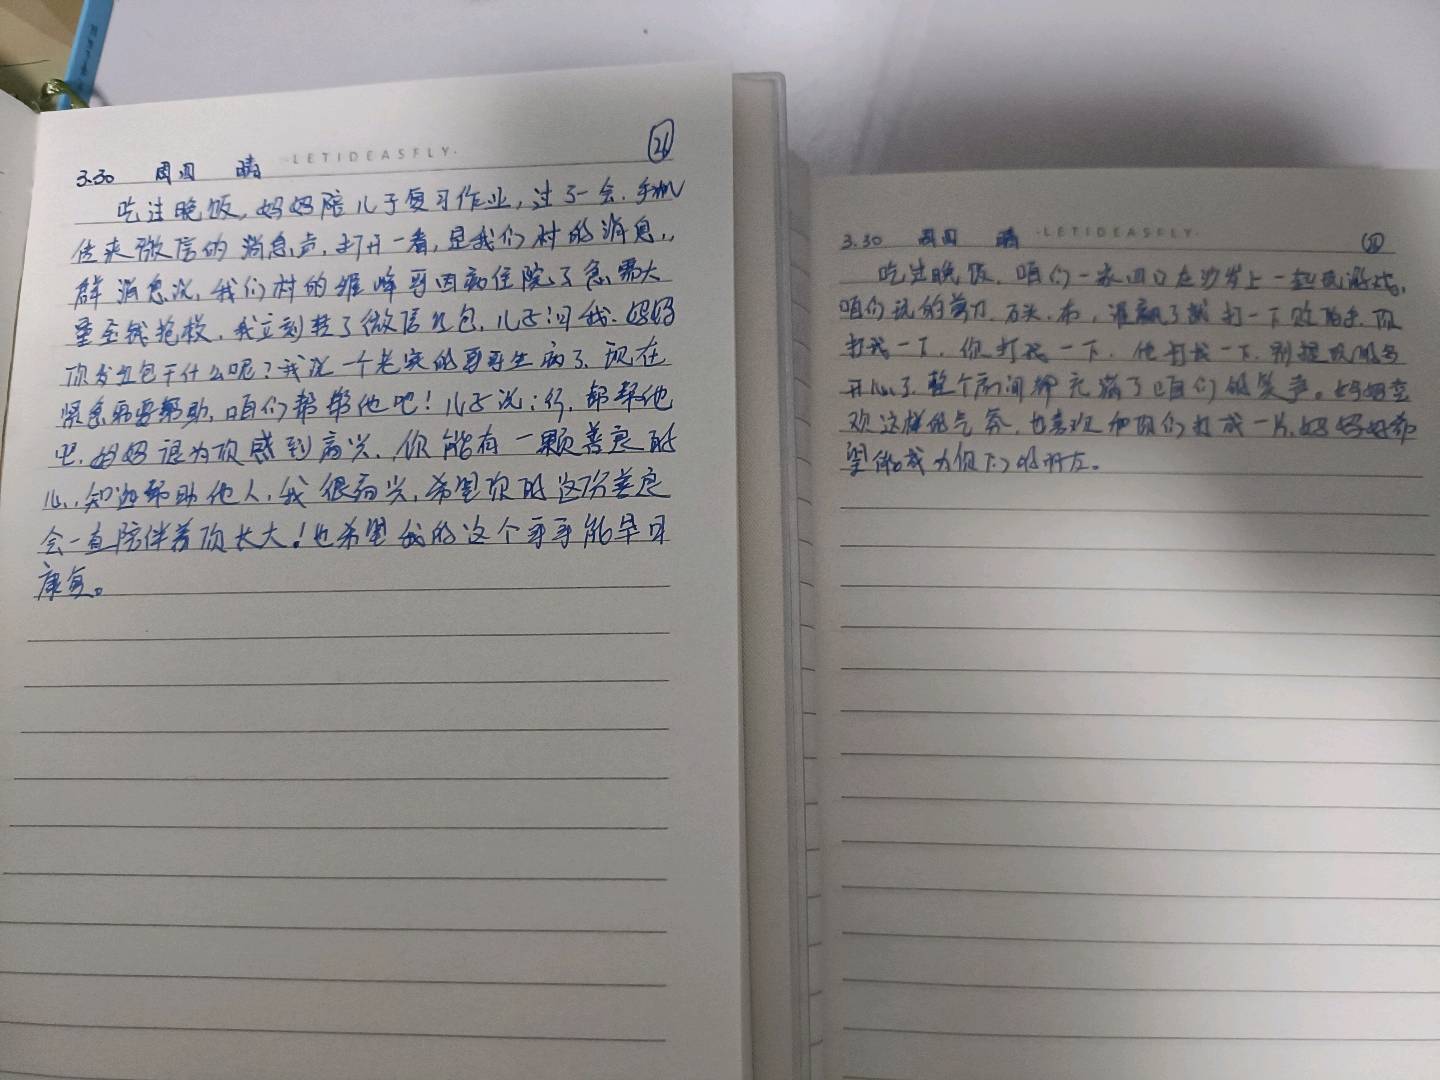 3.30 周四 晴 ·LETIDEASFLY· 26
吃过晚饭，妈妈陪儿子复习作业，过了一会，手机
传来微信的消息声，打开一看，是我们村的消息，
群消息说，我们村的维峰哥因病住院了急需大
量金钱抢救，我立刻转了微信红包，儿子问我：妈妈
你发红包干什么呢？我说一个老家的哥哥生病了，现在
紧急需要帮助，咱们帮帮他吧！儿子说：行，帮帮他
吧，妈妈很为你感到高兴，你能有一颗善良的
心，知道帮助他人，我很高兴，希望你的这份善良
会一直陪伴着你长大！也希望我的这个哥哥能早日
康复。
3.30 周四 晴 ·LETIDEASFLY·
吃过晚饭，咱们一家四口在沙发上一起玩游戏，
咱们玩的剪刀、石头、布，谁赢了就打一下败的手，你
打我一下，你打我一下，他打我一下，别提玩的多
开心了，整个房间都充满了咱们的笑声。妈妈喜
欢这样的气氛，也喜欢和你们打成一片，妈妈好希
望能成为你们的朋友。